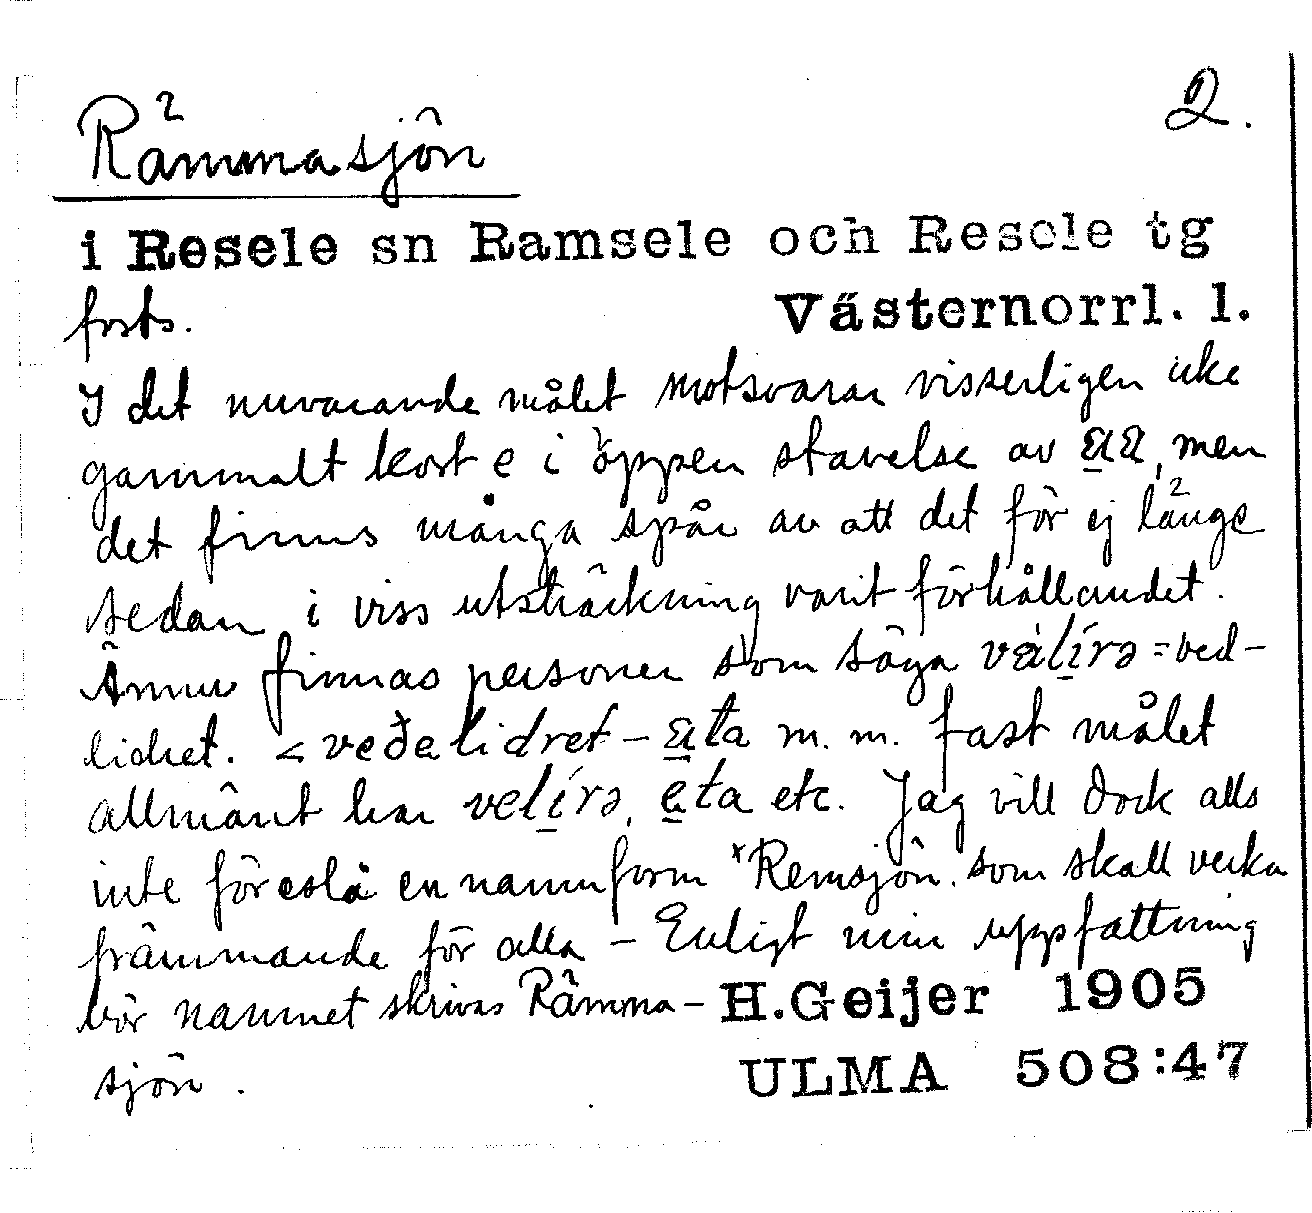 2.
Rämmasjön
i Resele sn Ramsele och Resele tg
forts. Västernorrl. l.
I det nuvarande målet motsvarar visserligen icke
gammalt kort e i öppen stavelse av a̱a, men
det finns många spår av att det för ej länge
sedan i viss utsträckning varit förhållandet.
Ännu finnas personer som säga valí̱rə = ved-
lidret. < veðalidret – a̱ta m. m. fast målet
allmänt har velí̱rə, e̱ta etc. Jag vill dock alls
inte föreslå en namnform *Remsjön. som skall verka
främmande för alla – Enligt min uppfattning
bör namnet skrivas Rämma- H.Geijer 1905
sjön. ULMA 508:47